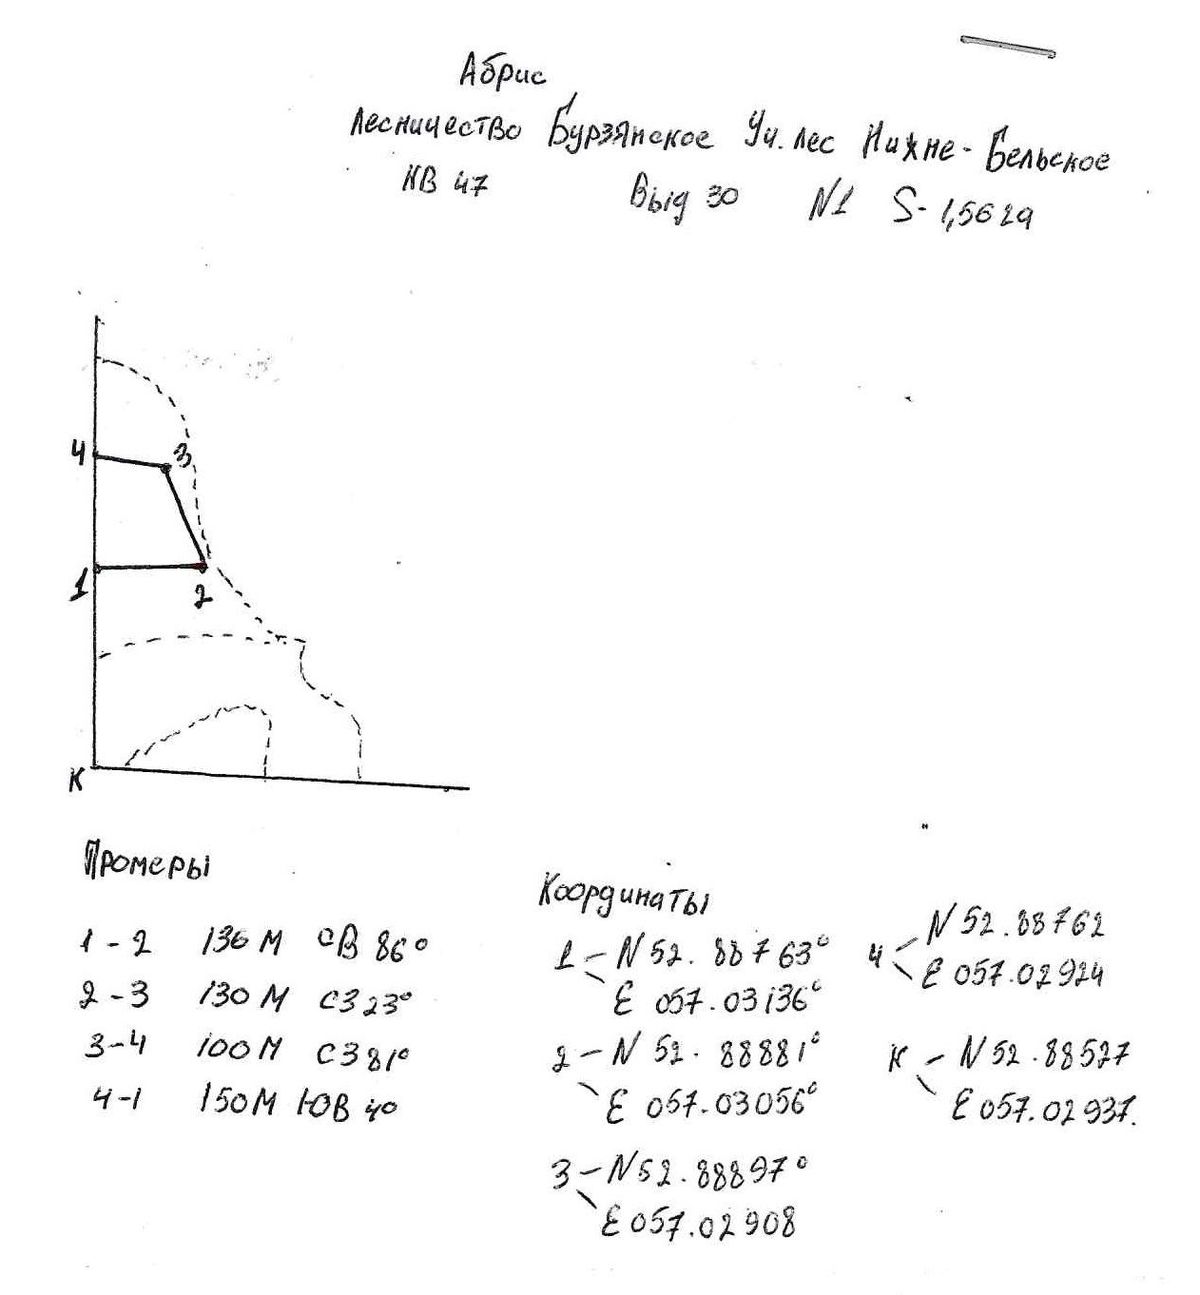 Абрис
Лесничество Бурзянское Уч. лес Нижне-Бельское
КВ 47 Выд 30 N1 S- 1,562а
4
3
1
2
К
Промеры
1-2 136 М СВ 86°
2-3 130 М СЗ 23°
3-4 100 М СЗ 81°
4-1 150 М ЮВ 4°
Координаты
1 - N 52. 88763°
E 057.03136°
2 - N 52. 88881°
E 057.03056°
3 - N 52. 88897°
E 057.02908
4 - N 52. 88762
E 057.02924
К - N 52. 88527
E 057.02937.